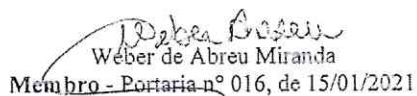 Weber de Abreu Miranda
Membro - Portaria nº 016, de 15/01/2021